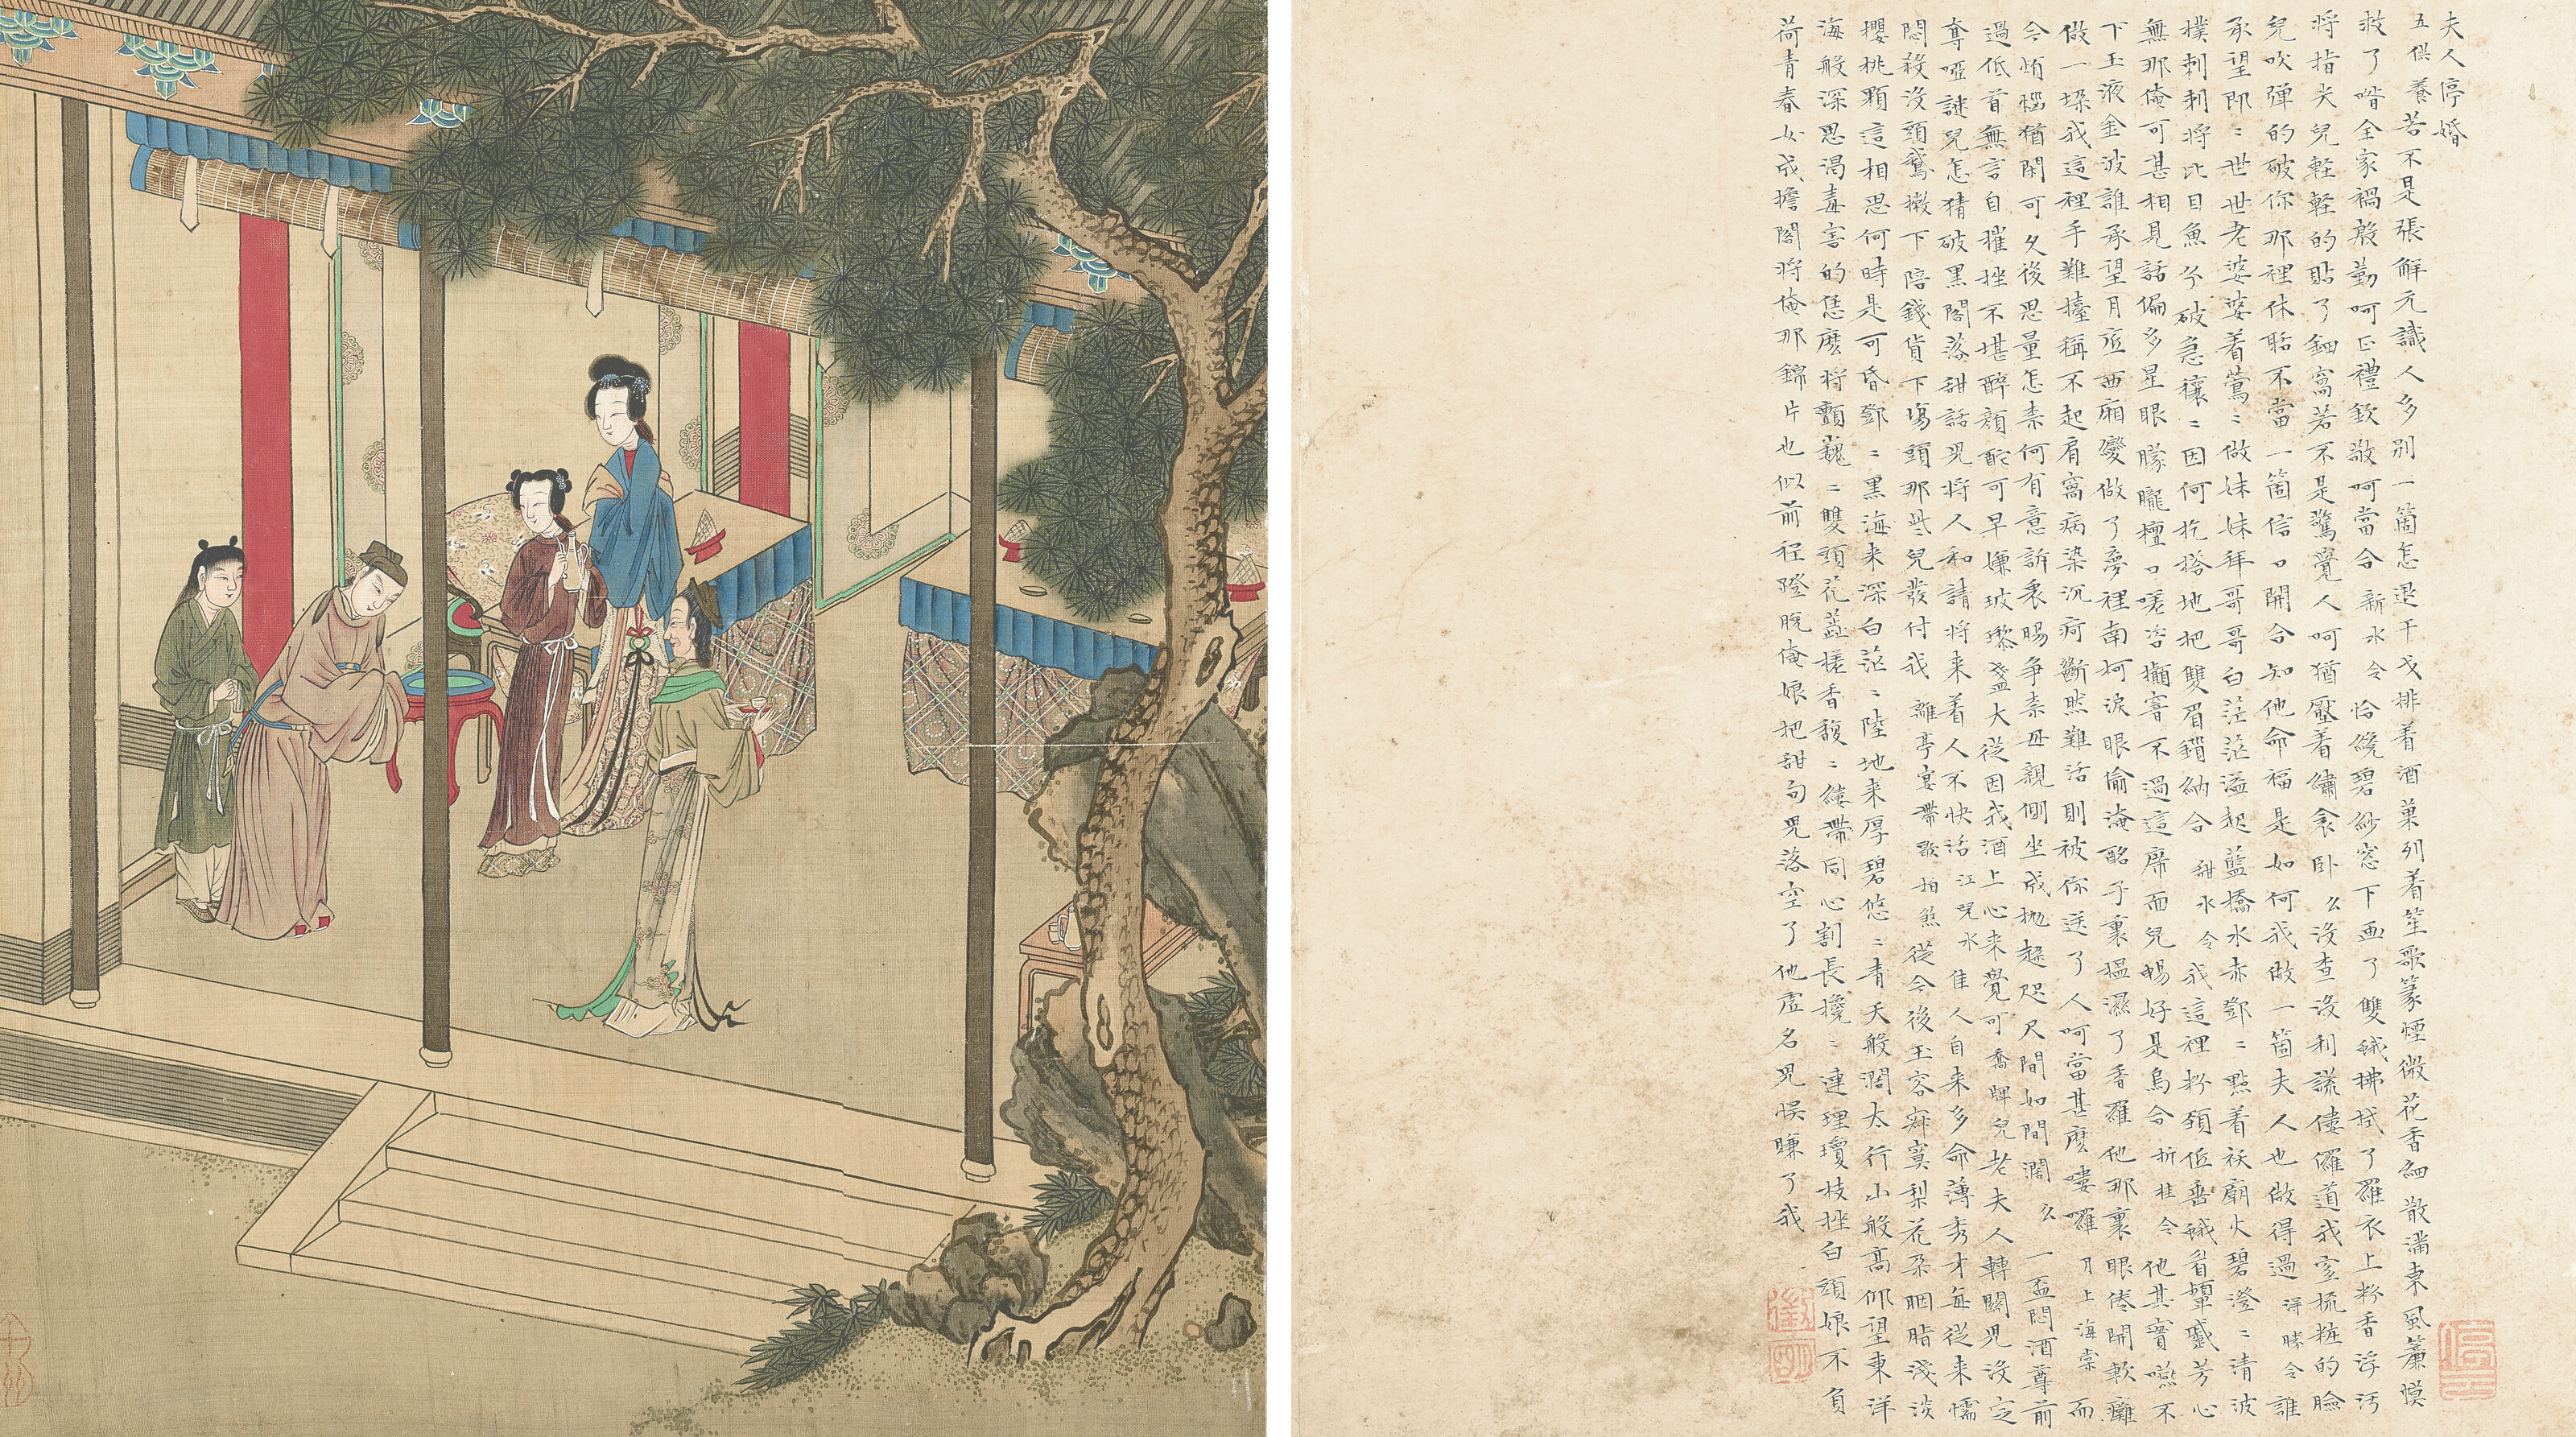 夫人停婚
五供養若不是張解元識人多別一箇怎退干戈排着酒菓列着笙歌篆煙微花香細散滿東風簾幙
救了喒全家禍殷勤呵正禮欽敬呵當合新水令恰纔碧紗窓下画了雙蛾拂拭了羅衣上粉香浮汚
将指尖兒軽軽的貼了鈿窩若不是驚覺人呵猶壓着繡衾卧么没查没利謊僂儸道我宜梳粧的臉
兒吹弹的破你那裡休聒不當一箇信口開合知他命福是如何我做一箇夫人也做得過淂勝令誰
承望即〻世世老婆婆着鶯〻做妹妹拜哥哥白茫茫溢起藍橋水赤鄧〻點着祅廟火碧澄〻清波
撲剌剌将比目魚分破急穰〻因何扢搭地把雙眉鎻納合甜水令我這裡粉頸低垂蛾眉顰蹙芳心
無那俺可甚相見話偏多星眼朦朧檀口嗟咨攧窨不過這席面兒暢好是烏合折桂令他其實嚥不
下玉液金波誰承望月底西廂變做了夢裡南柯淚眼偷淹酩子裏揾濕了香羅他那裏眼倦開軟癱
做一垜我這裡手難擡稱不起肩窩病染沉疴斷然難活則被你送了人呵當甚麽嘍囉月上海棠而
今煩惱猶閑可久後思量怎柰何有意訴衷腸争柰母親側坐成抛趓咫尺間如間濶么一盃悶酒尊前
過低首無言自摧挫不堪醉顔酡可早嫌玻瓈盞大從因我酒上心来覺可喬牌兒老夫人轉關兒没定
奪啞謎兒怎猜破黒閣落甜話兒将人和請将来着人不快活江兒水隹人自来多命薄秀才每從来懦
悶殺没頭鵞撇下陪錢貨下塲頭那些兒發付我離亭宴帶歇拍煞從今後玉容寂寞梨花朶胭脂淺淡
櫻桃顆這相思何時是可昏鄧〻黒海来深白茫〻陸地来厚碧悠〻青天般濶太行山般高仰望東洋
海般深思渴毒害的恁麽将顫巍〻雙頭花蘂搓香馥〻縷帶同心割長攙〻連理瓊枝挫白頭娘不負
荷青春女成擔閣将俺那錦片也似前程蹬脱俺娘把甜句兒落空了他虛名兒悮賺了我